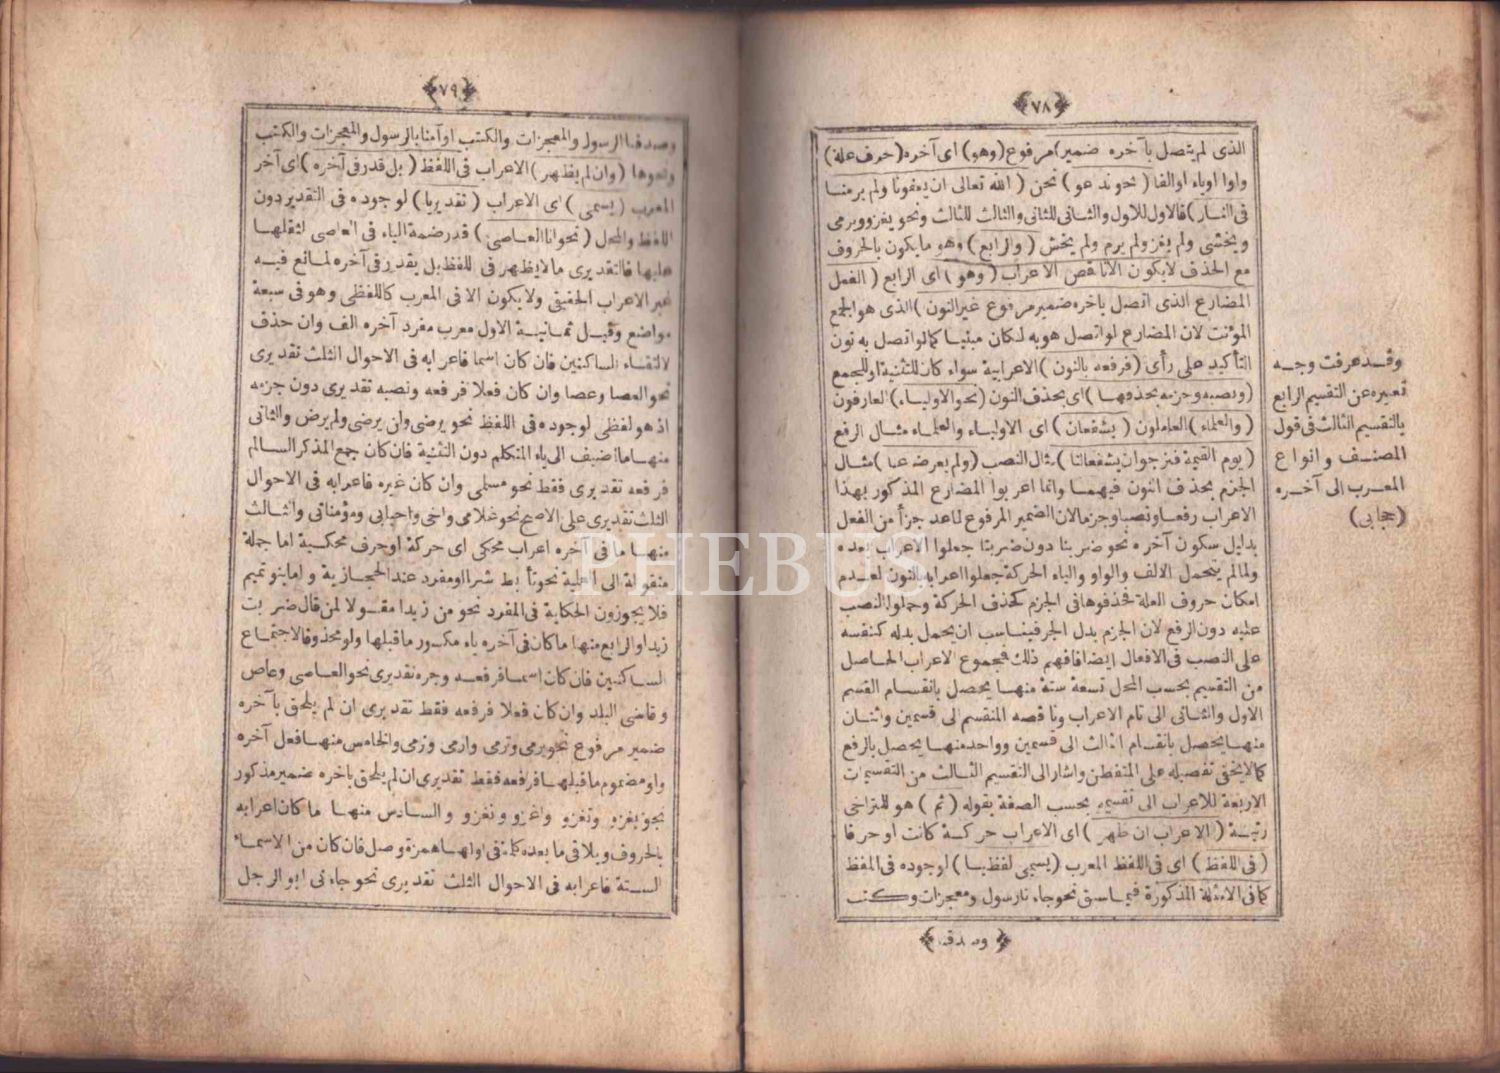 ﴿٧٨﴾
الذى لم يتصل بآخره ضمير) مرفوع (وهو) اى آخره (حرف علة)
واوا اوياء اوالفا (نحوندعو) نحن (الله تعالى ان يعفونا ولم يرمنا
فى النار) فالاول للاول والثانى للثانى والثالث للثالث ونحو يغزو ويرمى
ويخشى ولم يغز ولم يرم ولم يخش (والرابع) وهو مايكون بالحروف
مع الحذف لايكون الاناقص الاعراب (وهو) اى الرابع (الفعل
المضارع الذى اتصل باخره ضمير مرفوع غير النون) الذى هو الجمع
المؤنث لان المضارع لو اتصل هو به لكان مبنيا كمالو اتصل به نون
التأكيد على رأى (فرفعه بالنون) الاعرابية سواء كان للتثنية او للجمع
(ونصبه وجزمه بحذفها) اى بحذف النون (نحو الاولياء) العارفون
(والعلماء) العاملون (يشفعان) اى الاولياء والعلماء مثال الرفع
(يوم القيمة فنرجوان يشفعالنا) مثال النصب (ولم يعرضا عنا) مثال
الجزم بحذف النون فيهما وانما اعربوا المضارع المذكور بهذا
الاعراب رفعا ونصبا وجزما لان الضمير المرفوع لما عد جزأ من الفعل
بدليل سكون آخره نحو ضربنا دون ضربنا جعلوا الاعراب بعده
ولما لم يتحمل الالف والواو والياء الحركة جعلوا اعرابه بالنون لعدم
امكان حروف العلة فحذفوها فى الجزم كحذف الحركة وحملوا النصب
عليه دون الرفع لان الجزم بدل الجر فيناسب ان يحمل بدله كنفسه
على النصب فى الافعال ايضا فافهم ذلك فمجموع الاعراب الحاصل
من التقسيم بحسب المحل تسعة ستة منها يحصل بانقسام القسم
الاول والثانى الى تام الاعراب وناقصه المنقسم الى قسمين واثنان
منها يحصل بانقسام الثالث الى قسمين وواحد منها يحصل بالرفع
كما لايخفى تفصيله على المتفطن واشار الى التقسيم الثالث من التقسيمات
الاربعة للاعراب الى تقسيمه بحسب الصفة بقوله (ثم) هو للتراخى
رتبة (الاعراب ان ظهر) اى الاعراب حركة كانت او حرفا
(فى اللفظ) اى فى اللفظ المعرب (يسمى لفظيا) لوجوده فى اللفظ
كما فى الامثلة المذكورة فيما سبق نحو جاءنا رسول ومعجزات وكتب
﴿ وصدقنا ﴾
وقد عرفت وجه
تعبيره عن التقسيم الرابع
بالتقسيم الثالث فى قول
المصنف وانواع
المعرب الى آخره
(حجابى)
﴿٧٩﴾
وصدقنا الرسول والمعجزات والكتب اوآمنا بالرسول والمعجزات والكتب
ونحوها (وان لم يظهر) الاعراب فى اللفظ (بل قدر فى آخره) اى آخر
المعرب (يسمى) اى الاعراب (تقديريا) لوجوده فى التقدير دون
اللفظ والمحل (نحو انا العاصى) قدر ضمة الياء فى العاصى لثقلها
عليها فالتقديرى ما لايظهر فى اللفظ بل يقدر فى آخره لمانع فيه
غير الاعراب الحقيقى ولايكون الا فى المعرب كاللفظى وهو فى سبعة
مواضع وقيل ثمانية الاول معرب مفرد آخره الف وان حذف
لالتقاء الساكنين فان كان اسما فاعرابه فى الاحوال الثلث تقديرى
نحو العصا وعصا وان كان فعلا فرفعه ونصبه تقديرى دون جزمه
اذ هو لفظى لوجوده فى اللفظ نحو يرضى ولن يرضى ولم يرض والثانى
منها ما اضيف الى ياء المتكلم دون التثنية فان كان جمع المذكر السالم
فرفعه تقديرى فقط نحو مسلمى وان كان غيره فاعرابه فى الاحوال
الثلث تقديرى على الاصح نحو غلامى واخى واحبابى ومؤمناتى والثالث
منها ما فى آخره اعراب محكى اى حركة اوحرف محكية اما جملة
منقولة الى العلمية نحو تأبط شرا اومفرد عند الحجازية واما بنو تميم
فلا يجوزون الحكاية فى المفرد نحو من زيدا مقولا لمن قال ضربت
زيدا والرابع منها ما كان فى آخره ياء مكسور ما قبلها ولو محذوفا لاجتماع
الساكنين فان كان اسما فرفعه وجره تقديرى نحو العاصى وعاص
وقاضى البلد وان كان فعلا فرفعه فقط تقديرى ان لم يلحق بآخره
ضمير مرفوع نحو يرمى وترمى وارمى ونرمى والخامس منها فعل آخره
واو مضموم ما قبلها فرفعه فقط تقديرى ان لم يلحق باخره ضمير مذكور
نحو يغزو وتغزو واغزو ونغزو والسادس منها ما كان اعرابه
بالحروف ويلاقى ما بعده كلمة فى اولها همزة وصل فان كان من الاسماء
الستة فاعرابه فى الاحوال الثلث تقديرى نحو جاءنى ابوالرجل
PHEBUS